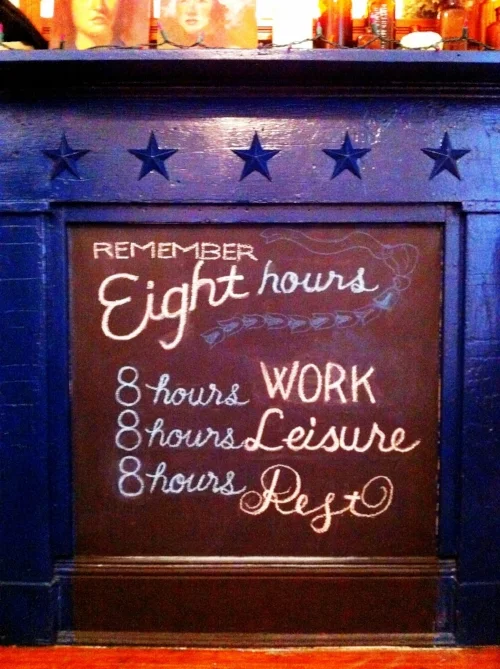 REMEMBER
Eight hours
8 hours WORK
8 hours Leisure
8 hours Rest